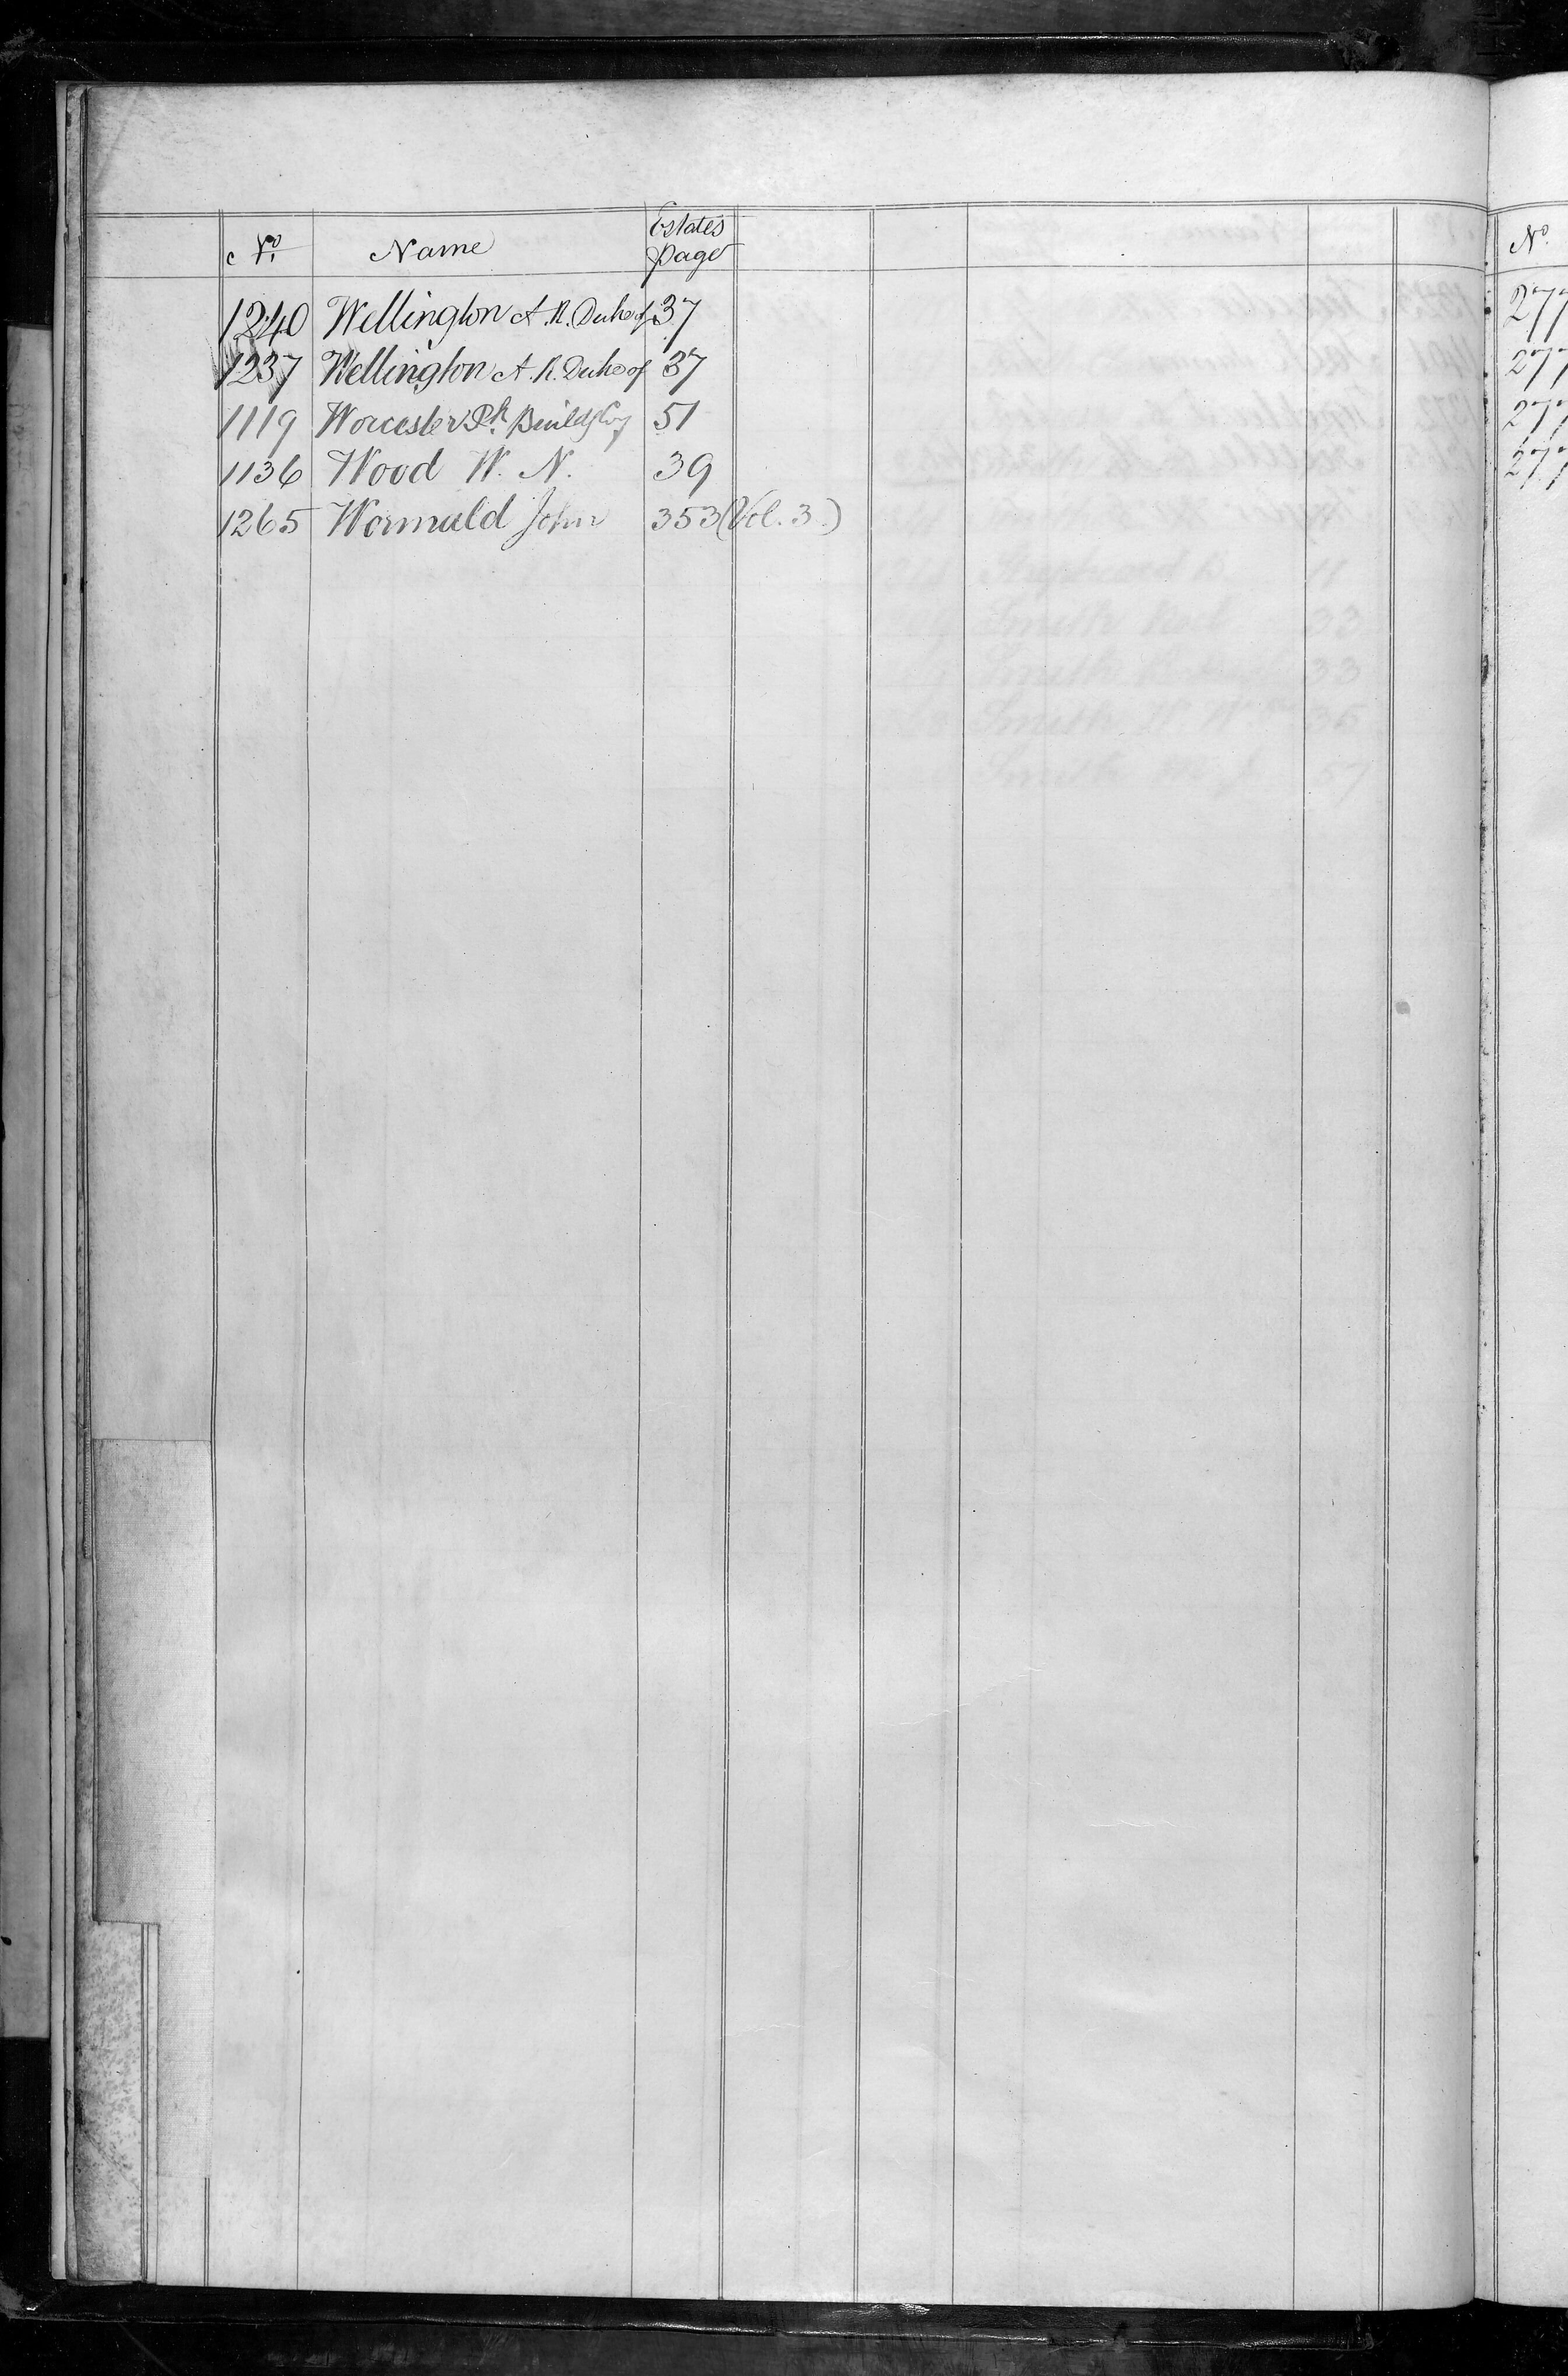 No. Name Estates page
1240 Wellington A. R. Duke of 37
1237 Wellington A. R. Duke of 37
1119 Worcester Pk. Buildg Coy 51
1136 Wood W. N. 39
1265 Wormald John 353 (Vol. 3.)
No.
277
277
277
277